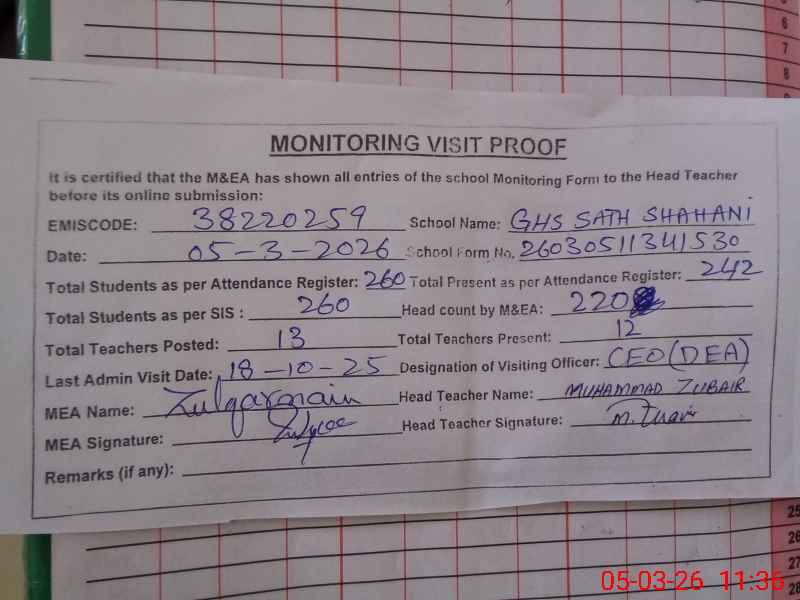 6
7
8
MONITORING VISIT PROOF
It is certified that the M&EA has shown all entries of the school Monitoring Form to the Head Teacher
before its online submission:
EMISCODE: 38220259 School Name: GHS SATH SHAHANI
Date: 05-3-2026 School Form No. 26030511341530
Total Students as per Attendance Register: 260 Total Present as per Attendance Register: 242
Total Students as per SIS : 260 Head count by M&EA: 220
Total Teachers Posted: 13 Total Teachers Present: 12
Last Admin Visit Date: 18-10-25 Designation of Visiting Officer: CEO(DEA)
MEA Name: Zulqarnain Head Teacher Name: MUHAMMAD ZUBAIR
MEA Signature: Head Teacher Signature:
Remarks (if any):
25
26
27
28
05-03-26 11:36